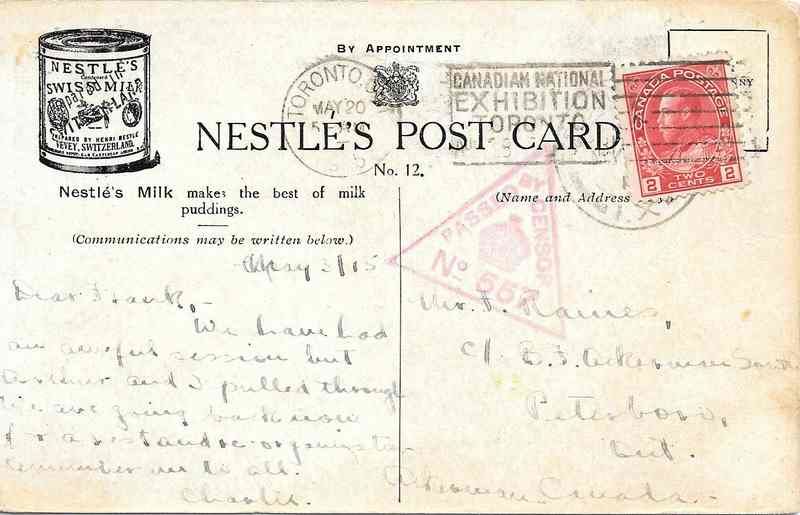 NESTLE'S
Condensed
SWISS MILK
PREPARED BY HENRI NESTLÉ
VEVEY, SWITZERLAND.
BY APPOINTMENT
TORONTO,
MAY 20
CANADIAN NATIONAL
EXHIBITION
TORONTO
CANADA POSTAGE
2 TWO CENTS 2
NESTLE'S POST CARD
No. 12.
Nestlé's Milk makes the best of milk
puddings.
(Communications may be written below.)
(Name and Address
PASSED BY CENSOR
No 557
May 3/15
Dear Frank,-
We have had
an awful session but
and I pulled through
We are going back now
for a rest and re-organization
Remember me to all.
Charlie.
Mr. F. Raines,
c/o B. F. Ackerman
Peterboro,
Ont.
Canada.-